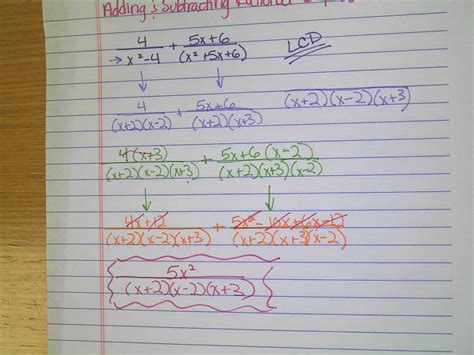 Adding & Subtracting Rational
4/(x²-4) + (5x+6)/(x²+5x+6) LCD
4/((x+2)(x-2)) + (5x+6)/((x+2)(x+3)) (x+2)(x-2)(x+3)
4(x+3)/((x+2)(x-2)(x+3)) + 5x+6(x-2)/((x+2)(x+3)(x-2))
4x+12/((x+2)(x-2)(x+3)) + 5x²-10x+6x-12/((x+2)(x+3)(x-2))
5x²/((x+2)(x-2)(x+3))